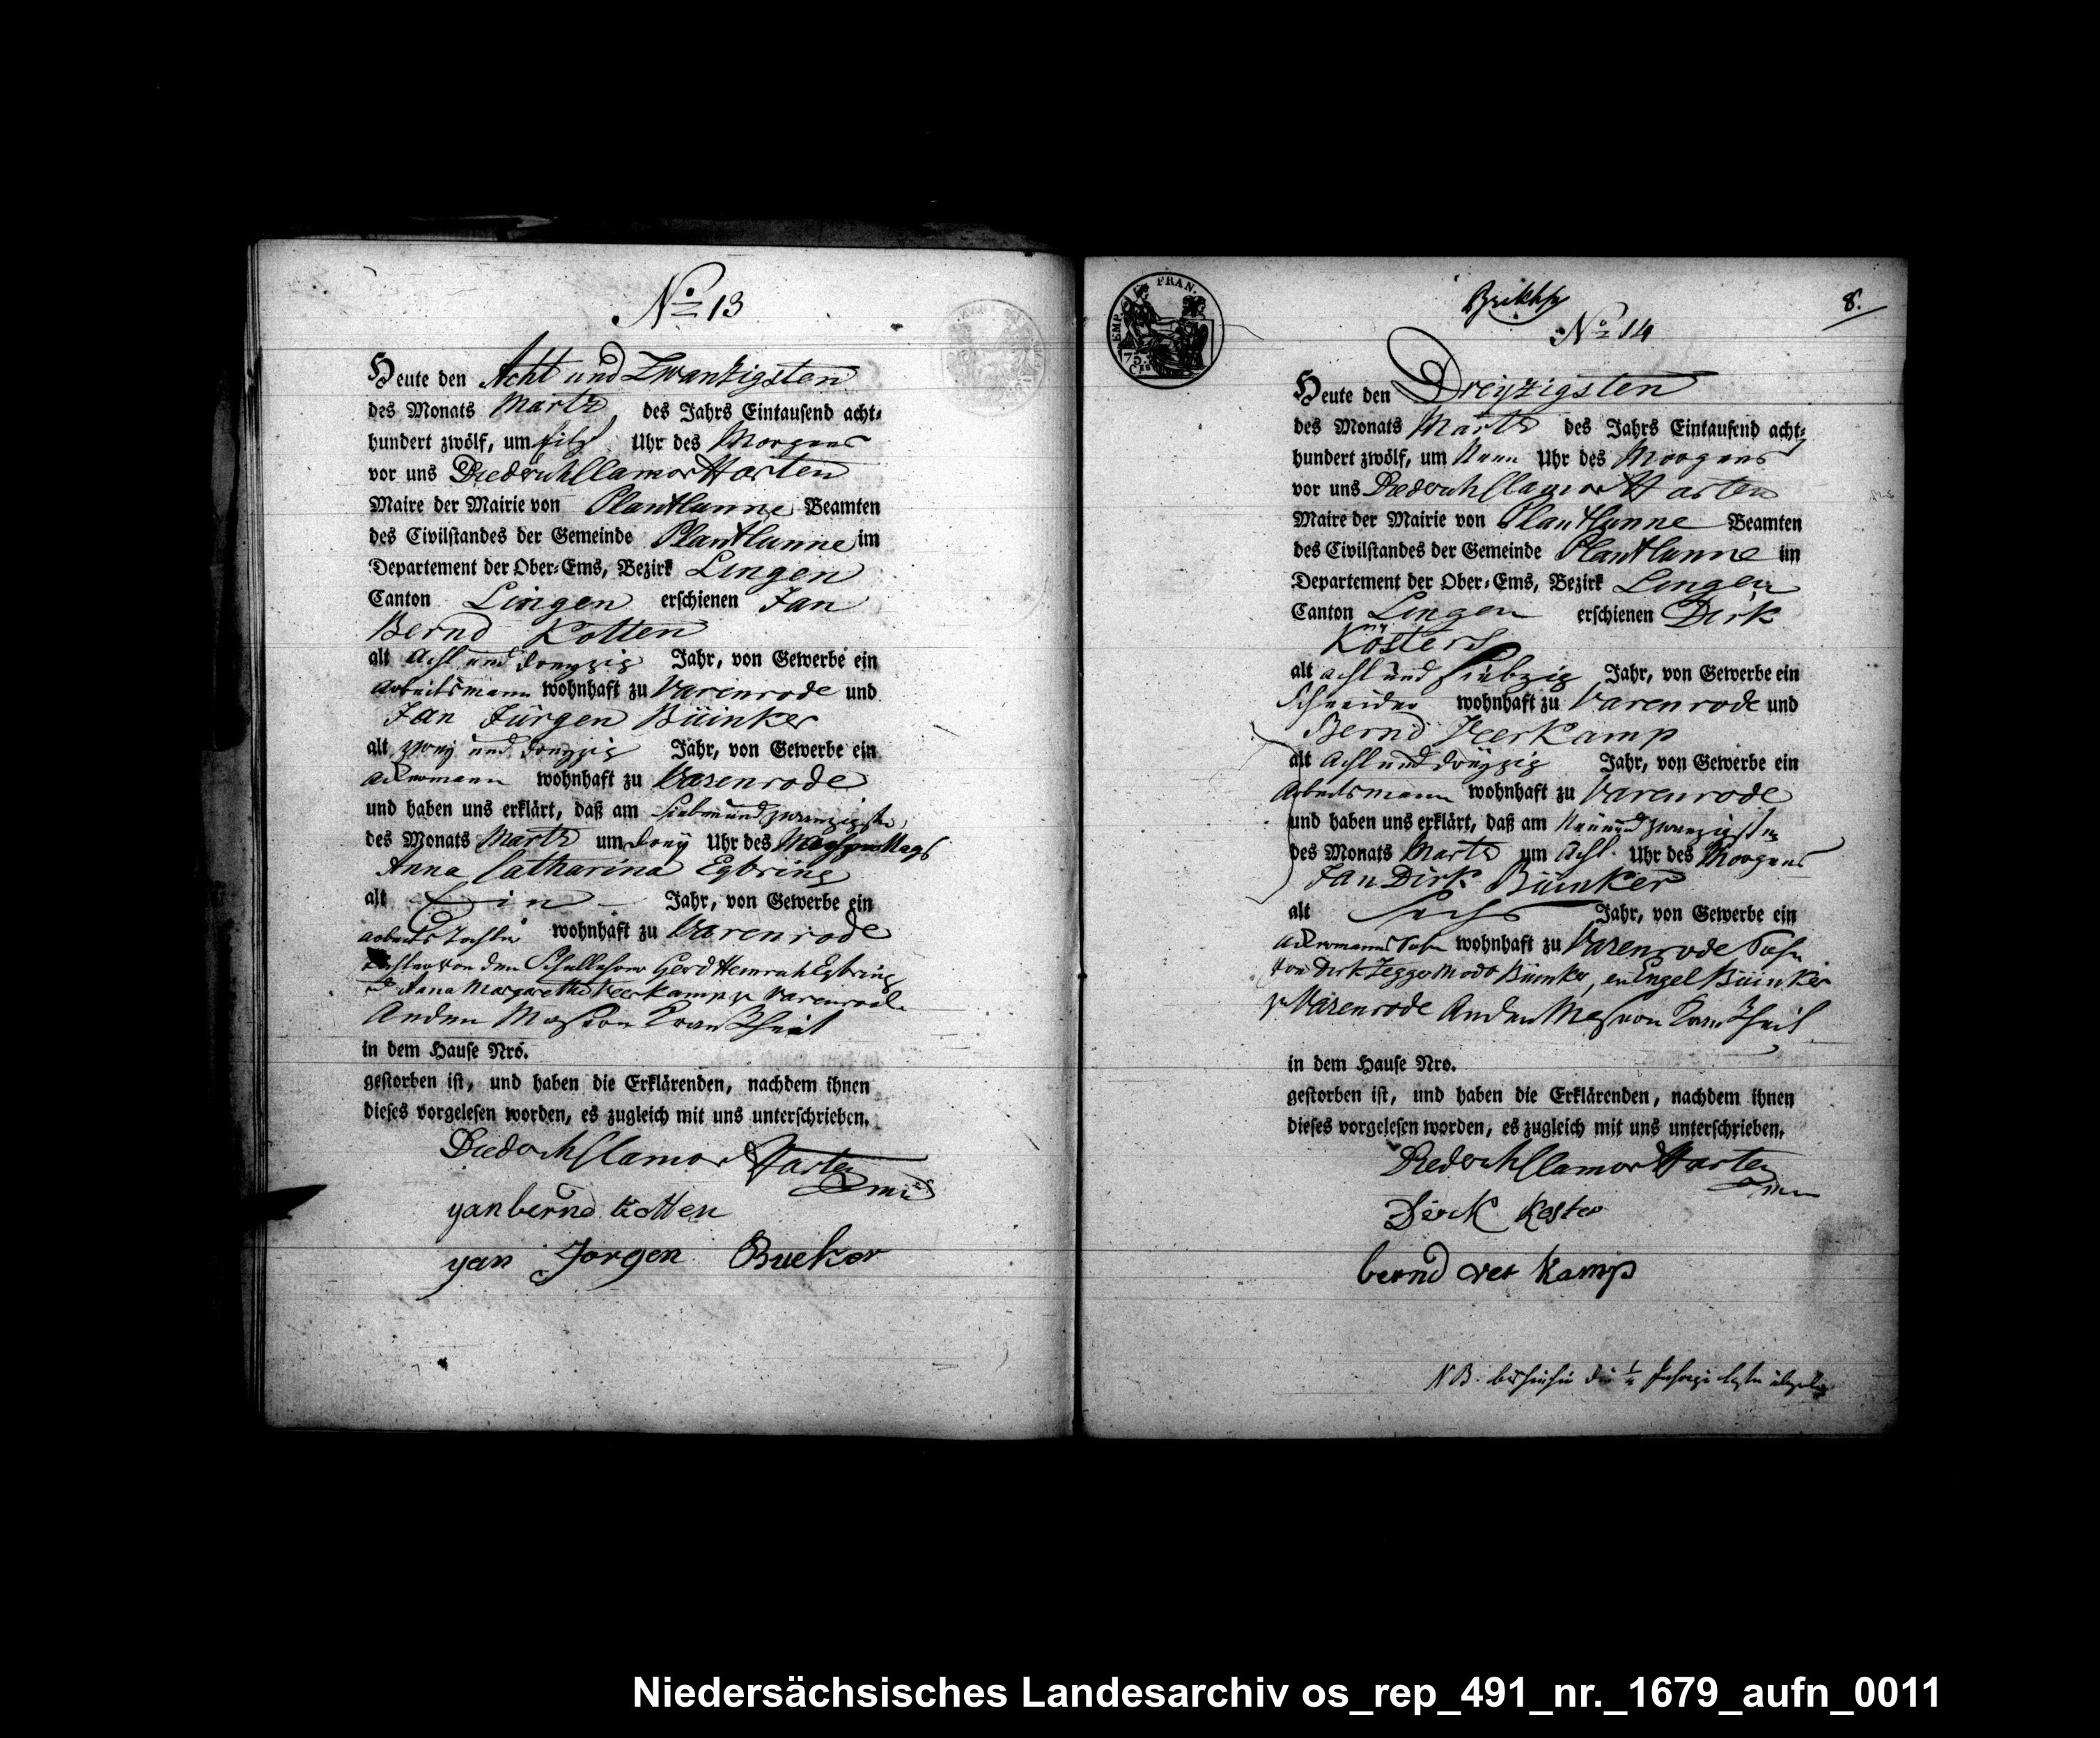 No 13
Heute den Acht und Zwantzigsten
des Monats Martz des Jahrs Eintausend acht-
hundert zwölf, um Uhr des Morgens
vor uns Diedrich Clamor Harten
Maire der Mairie von Plantlünne Beamten
des Civilstandes der Gemeinde Plantlünne im
Departement der Ober-Ems, Bezirk Lingen
Canton Lingen erschienen Jan
Bernd Kotten
alt Acht und dreyzig Jahr, von Gewerbe ein
Arbeitsmann wohnhaft zu Varenrode und
Jan Jürgen Büinker
alt zwey und dreyzig Jahr, von Gewerbe ein
Ackersmann wohnhaft zu Varenrode
und haben uns erklärt, daß am Siebenundzwanzigsten
des Monats Martz um drey Uhr des Nachmittags
Anna Catharina Egbring
alt Ein Jahr, von Gewerbe ein
Arbeits Tochter wohnhaft zu Varenrode
Tochter von den Schullehrer Gerd Heinrich Egbring
und Anna Margaretha Veerkamp zu Varenrode
An den Masern Krankheit
in dem Hause Nro.
gestorben ist, und haben die Erklärenden, nachdem ihnen
dieses vorgelesen worden, es zugleich mit uns unterschrieben.
Diedrich Clamor Harten
yan bernd kotten
yan Jorgen Bueker
EMP. FRAN.
75.
CES
8.
No 14
Heute den Dreyzigsten
des Monats Martz des Jahrs Eintausend acht-
hundert zwölf, um Neun Uhr des Morgens
vor uns Diedrich Clamor Harten
Maire der Mairie von Plantlünne Beamten
des Civilstandes der Gemeinde Plantlünne im
Departement der Ober-Ems, Bezirk Lingen
Canton Lingen erschienen Dirk
Kösters
alt acht und Siebzig Jahr, von Gewerbe ein
Schneider wohnhaft zu Varenrode und
Bernd Veerkamp
alt Acht und dreyzig Jahr, von Gewerbe ein
Arbeitsmann wohnhaft zu Varenrode
und haben uns erklärt, daß am Neunundzwanzigsten
des Monats Martz um Acht Uhr des Morgens
Jan Dirk Büinker
alt Sechs Jahr, von Gewerbe ein
Ackersmanns Sohn wohnhaft zu Varenrode Sohn
von Dirk Büinker, en Engel Büinker
zu Varenrode An den Masern Krankheit
in dem Hause Nro.
gestorben ist, und haben die Erklärenden, nachdem ihnen
dieses vorgelesen worden, es zugleich mit uns unterschrieben.
Diedrich Clamor Harten
Dirck Koster
bernd ver kamp
NB.
Niedersächsisches Landesarchiv os_rep_491_nr._1679_aufn_0011